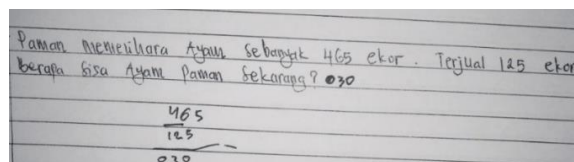 Paman memelihara Ayam Sebanyak 465 ekor. Terjual 125 ekor
berapa Sisa Ayam Paman Sekarang? 030
465
125
030